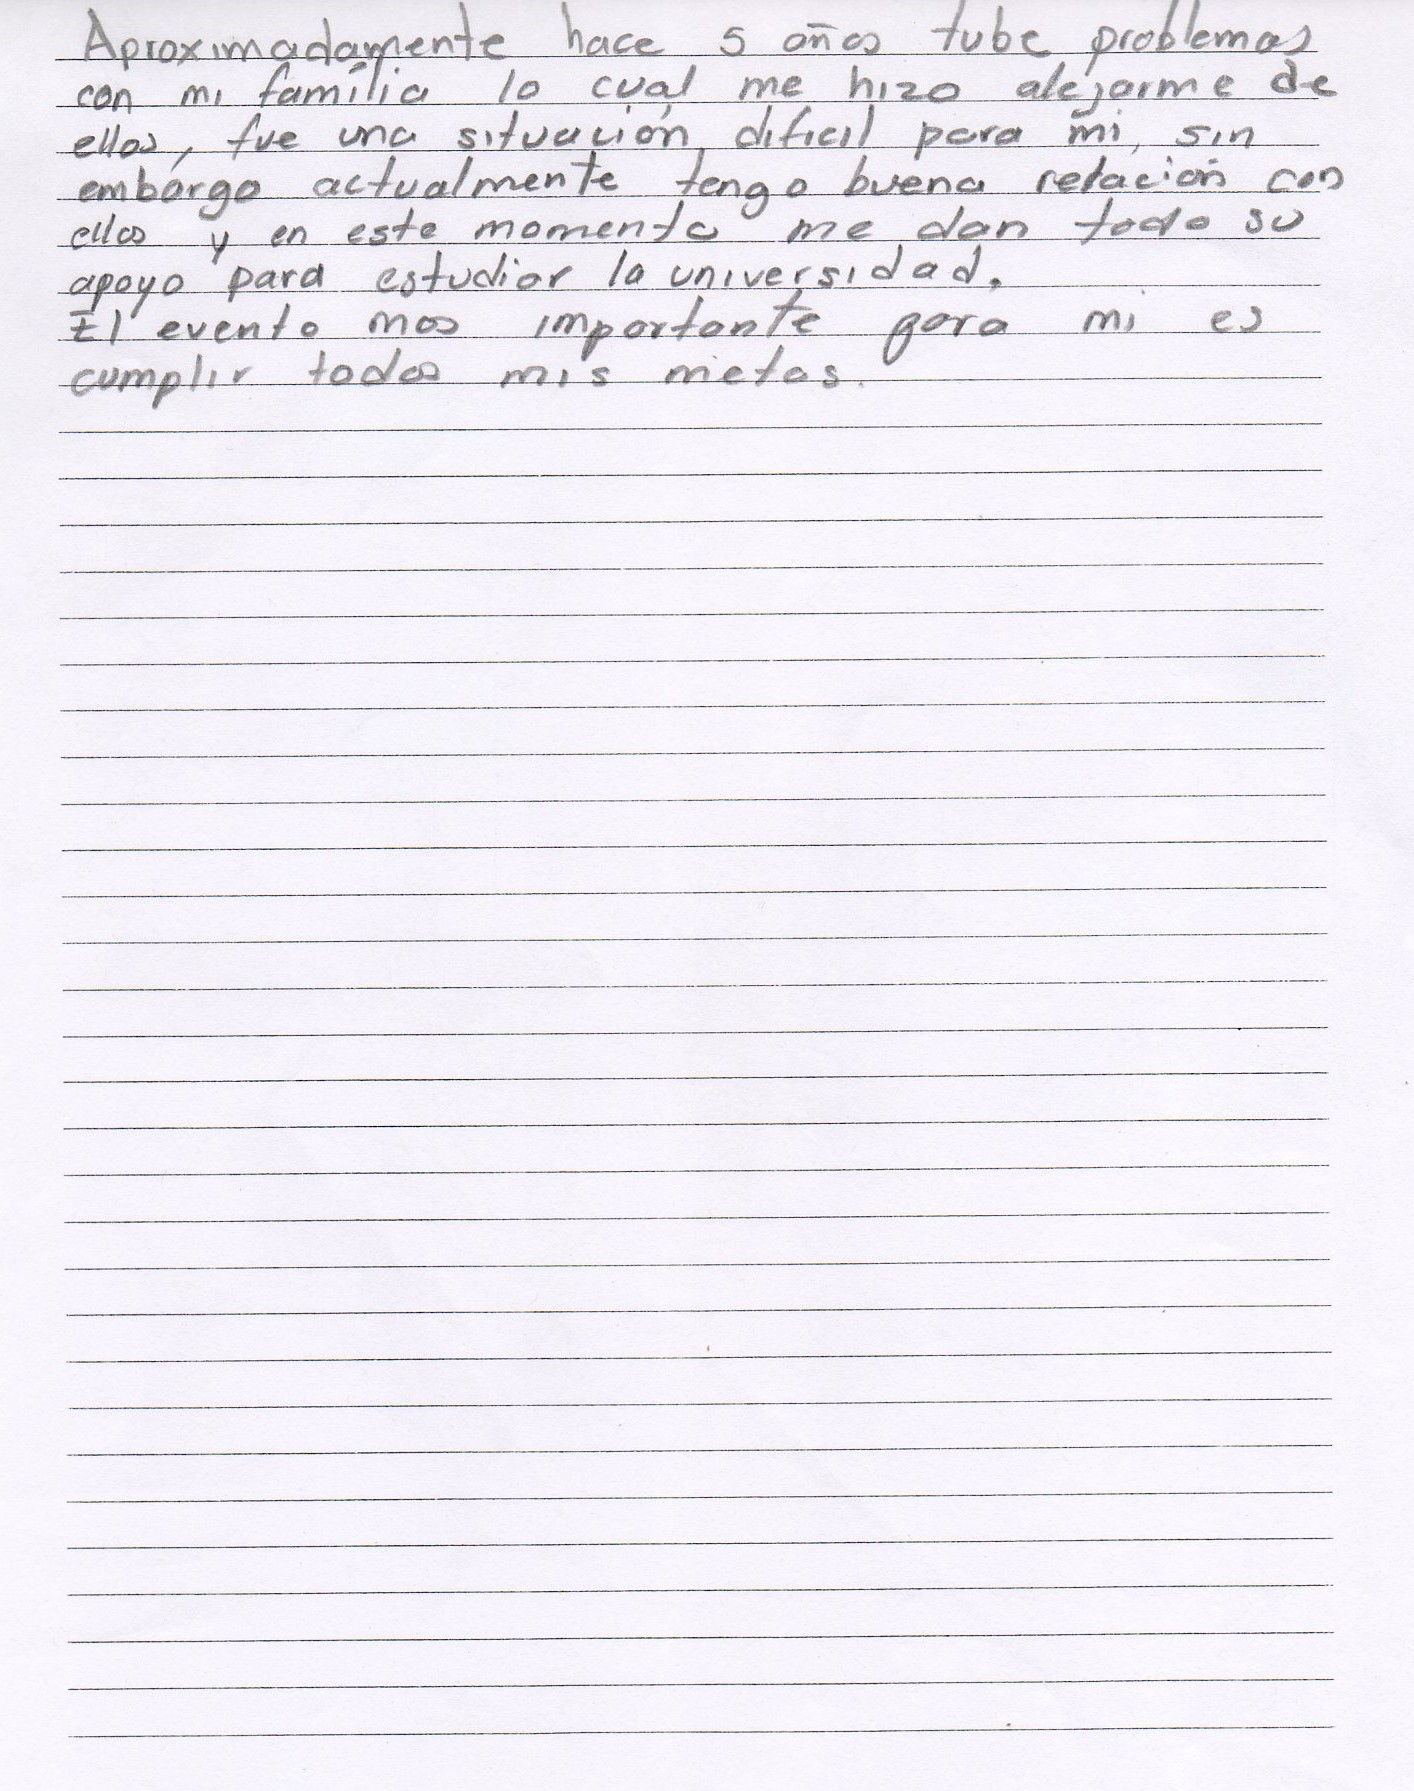 Aproximadamente hace 5 años tube problemas
con mi família lo cual me hizo alejarme de
ellos, fue una situación dificil para mi, sin
embargo actualmente tengo buena relación con
ellos y en este momento me dan todo su
apoyo para estudiar la universidad.
El evento mas importante para mi es
cumplir todas mis metas.